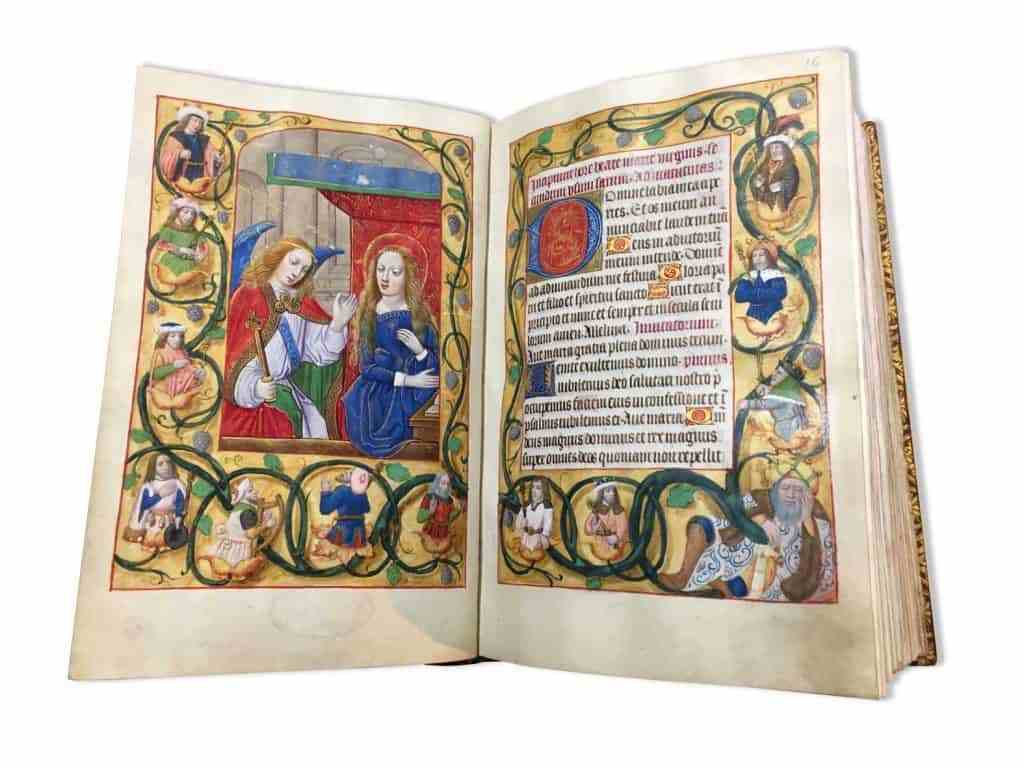 16
Incipiunt hore beate marie virginis se
cundum usum sarum. Ad matutinas
Domine labia mea ape
ries. Et os meum an
nunciabit laudem tuā
Deus in adiutoriū
meum intende. Domine
ad adiuvandum me festina Gloria pa
tri et filio et spiritui sancto Sicut erat ī
principio et nunc et semper et in secula secu
lorum amen. Alleluya.
Ave maria gratia plena dominus tecum.
exultemus domino.
iubilemus deo salutari nostro p
occupemus faciem eius in confessione et ī
psalmis iubilemus ei Ave maria.
deus magnus dominus et rex magnus
super omnes deos quoniam non repellit